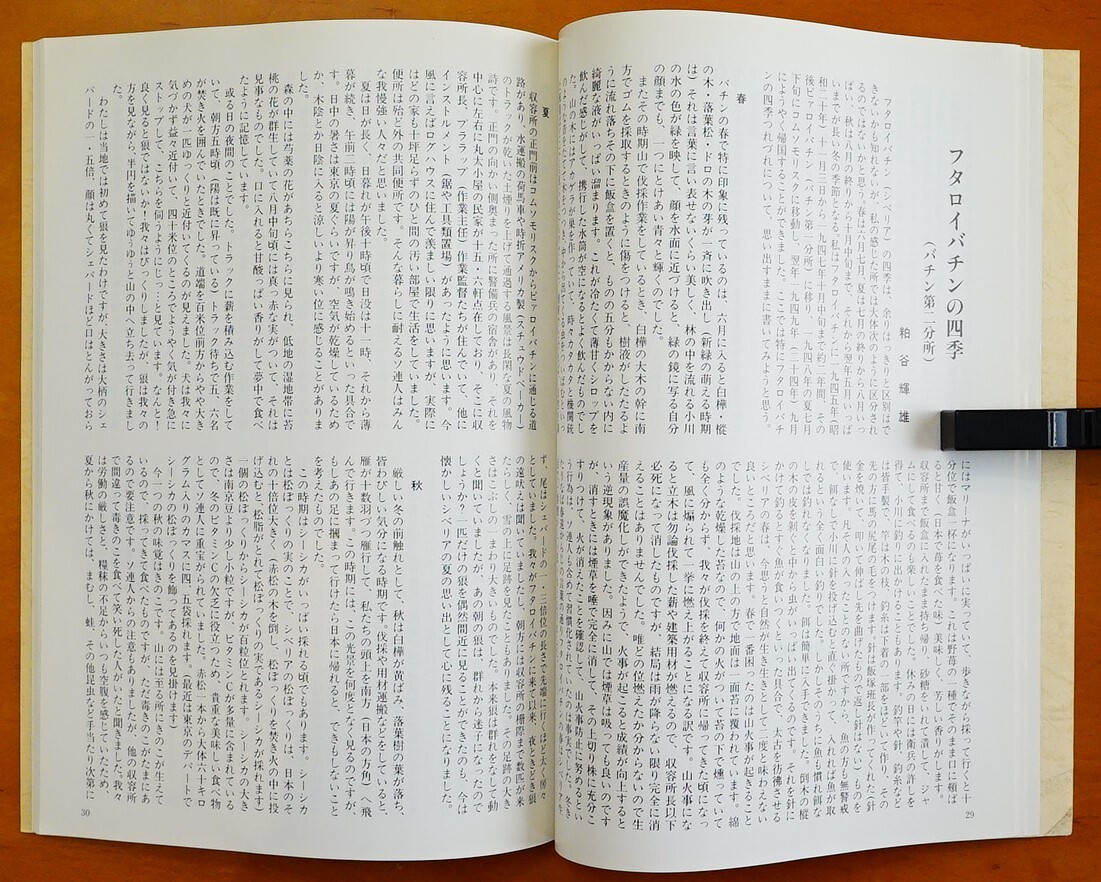 フタロイバチンの四季
(バチン第二分所)
粕谷輝雄
フタロイバチン(シベリア)の四季は、余りはっきりと区別はで
きないかも知れないが、私の感じた所では大体次のように区分され
るのではないかと思う。春は六月七月、夏は七月の終りから八月いっ
ぱい、秋は八月の終りから十月中旬まで、それから翌年五月いっぱい
までが長い冬の季節となる。私はフタロイバチンに、一九四五年(昭
和二十年)十一月三日から一九四七年十月中旬まで約二年間、その
後ピアロイバチン(バチン第一分所)に移り、一九四八年の夏七月
下旬にコムソモリスクに移動し、翌年一九四九年(二十四年)十二月
にようやく帰国することができました。ここでは特にフタロイバチ
ンの四季の感じについて、思い出すままに書いてみようと思う。
春
バチンの春で特に印象に残っているのは、六月に入ると白樺・樅
の木・落葉松・ドロの木の芽が一斉に吹き出し(新緑の萌える時期
は)それは言葉に言い表せないくらい美しく、林の中を流れる小川
の水の色が緑を映して、顔を水面に近づけると、緑の鏡に写る自分
の顔までも、一つにとけあい青々と輝くのでした。
またその時期山で伐採作業をしているとき、白樺の大木の幹に南
方でゴムを採取するときのように傷をつけると、樹液がしたたるよ
うに流れ落ちその下に飯盒を置くと、ものの五分もかからない内に
綺麗な液がいっぱい溜まります。これが冷たくて薄甘くシロップを
飲んだ感じがして、携行した水筒が空になるとよく飲んだものでし
た。山の木にはアカゲラが巣を作っていて、時々カタカタと機関銃
にはヤーゴナがいっぱい実っていて、歩きながら採って行くと十
分位で飯盒に一杯位になります。これは野苺の一種でそのまま口に頬ば
ると甘くて、日本で苺を食べた味で美味しく、芳しい香りがします。
収容所まで飯盒に入れたまま持ち帰り、砂糖をいれて潰し、ジャ
ムを作って食べたこともありました。休みの日には衛兵の許しを
得て、小川に釣りに出かけることもあります。釣竿や針、釣糸など
は皆手製で、竿は木の枝、釣糸は下着の一部をほどいて作り、その
先の方に馬の尻尾の毛をつけます。針は飯塚班長が作ってくれた針
金を焼いて、叩いて伸ばし先を曲げたもので返し針はないものを
使います。凡そ人の入ったことのない所ですから、魚の方も無警戒
で、餌なしで小川に針を投げ込むと直ぐ針掛かって、入れれば魚が取
れるといった全く面白い釣りでした。しかしそのうちに魚も慣れ餌な
しでは釣れなくなりました。餌は簡単に入手できました。倒木の樅
の木の皮を剥ぐと中から虫がいっぱい出てくるのです。それを針に
つけて釣るとすぐ魚が食いつくといった具合で、太古を彷彿させる
シベリアの春は、今思うと自然が生き生きとして二度と味わえない
良いところだと思います。春で一番困ったのは山火事が起きること
でした。伐採地は山の上の方で地面は一面苔に覆われています。綿
のような乾燥した苔なので、何かの火がついて苔の下で燻っていて
も全く分からず、我々が伐採を終えて収容所に帰ってきた頃になっ
て、風に煽られて一挙に燃え上がることになる訳です。山火事にな
ると立木は勿論伐採した薪や建築用材が燃えるので、収容所長以下
必死になって消したものですが、結局は雨が降らない限り完全に消
えることはありませんでした。唯どの位燃えたか分からないので生
産量の誤魔化しができたようで、火事が起こると成績が向上すると
いう逆現象がありました。因みに山では煙草は吸っても良いのです
が、消すときには煙草を唾で完全に消して、その上切り株に充分こ
すりつけて、火が消えたことを確認して、山火事防止に努めるとい
う行為は、ソ連人も含めて習慣化されていたのは事実でした。
29
夏
収容所の正門前はコムソモリスクからピァロイバチンに通じる道
路があり、水運搬の荷馬車や時折アメリカ製(スチュウドベーカー)
のトラックが乾いた土煙りを上げて通過する風景は長閑な夏の風物
詩です。正門の向かい側奥まった所に警備兵の宿舎があり、それを
中心に左右に丸太小屋の民家が十五・六軒点在しており、そこに収
容所長、プララップ(作業主任)作業監督たちが住んでいて、他に
インストルメント(鋸や工具類置場)があったように思います。今
風に言えばログハウスに住んで羨ましい限りに思いますが、実際に
はどの家も十坪足らずのひと間の汚い部屋で生活をしていました。
便所は殆ど外の共同便所です。そんな暮らしに耐えるソ連人はみん
な我慢強い人々だと思いました。
夏は日が長く、日暮れが午後十時頃で日没は十一時、それから薄
暮が続き、午前二時頃には陽が昇り鳥が鳴き始めるといった具合で
す。日中の暑さは東京の夏ぐらいですが、空気が乾燥しているため
か、木陰とか日陰に入ると涼しいより寒い位に感じることがありま
した。
森の中には芍薬の花があちらこちらに見られ、低地の湿地帯に苔
桃の花が群生していて八月中旬頃には真っ赤な実がついて、それは
見事なものでした。口に入れると甘酸っぱい香りがして夢中で食べ
たように記憶しています。
或る日の夜間のことでした。トラックに薪を積み込む作業をして
いて、朝方五時頃(陽は既に昇っている)トラック待ちで五、六名
が焚き火を囲んでいたときでした。道端を百米位前方からやや大き
めの犬が一匹ゆっくりと近付いてくるのが見えました。犬は我々に
気づかず益々近付いて、四十米位のところでようやく気が付き急に
ストップして、こちらを伺うようにじっと見ています。なんと!
良く見ると狼ではないか!我々はびっくりしましたが、狼は我々の
方を見ながら、半円を描いてゆうゆうと山の中へ立ち去って行きまし
た。
わたしは当地では初めて狼を見たわけですが、大きさは大柄のシェ
パードの一・五倍、顔は丸くてシェパードほど口はとんがっておら
ず、尾はシェパードの二、三倍位の長さで先端に行くほど太く房々
としていました。我々がフタロイバチンに来て以来、夜ときどき狼
の遠吠えは聞いたりしましたし、朝方には収容所の柵際まで数匹が来
たらしく、雪の上に足跡を見たこともありました。その足跡の大き
さはこぶしのふたまわり大きいものでした。本来狼は群れをなして動
くと聞いていましたが、あの朝の狼は、群れから迷子になったので
しょうか?一匹だけの狼を偶然間近に見ることができたのも、今は
懐かしいシベリアの夏の思い出として心に残ることになりました。
秋
厳しい冬の前触れとして、秋は白樺が黄ばみ、落葉樹の葉が落ち、
皆わびしい気分になる時期です。伐採や用材運搬などをしていると、
雁が十数羽づつ雁行して、私たちの頭上を南方(日本の方角)へ飛
んで行きます。この時期には、この光景を何度となく見るのですが、
もしあの足に摑まって行けたら日本に帰れると、できもしないこと
を考えたものでした。
この時期はシーシカがいっぱい採れる頃でもあります。シーシカ
とは松ぼっくりの実のことで、シベリアの松ぼっくりは、日本のそ
れの十倍位大きく(赤松の木を倒し、松ぼっくりを焚き火の中に投
げ込むと、松脂がとれて松ぼっくりの実であるシーシカが採れます)
一個の松ぼっくりからシーシカが百粒位とれます。シーシカの大き
さは南京豆より少し小粒ですが、ビタミンCが多量に含まれている
ので、冬のビタミンCの欠乏に役立つため、貴重な美味しい食べ物
としてソ連人に重宝がられていました。赤松一本から大体六十キロ
グラム入りのカマスに四、五袋採れます。(最近は東京のデパートで
シーシカの松ぼっくりを飾ってあるのを見掛けます)
今一つの秋の味覚はきのこです。山には至る所にきのこが生えて
いるので、採ってきて食べたものですが、ただ毒きのこがたまにあ
るので要注意です。ソ連人からの注意もありましたが、他の収容所
で間違って毒きのこを食べて笑い死した人がいたと聞きました。我々
は労働の厳しさと、糧秣の不足からいつも空腹を感じていたので、
夏から秋にかけては、まむし、蛙、その他昆虫など手当たり次第に
30